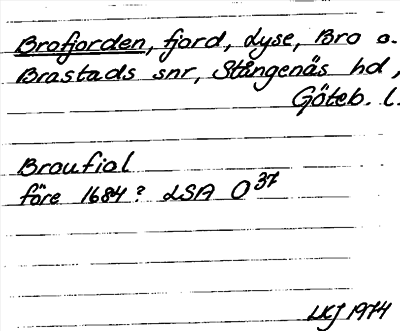 Brofjorden, fjord, Lyse, Bro o.
Brastads snr, Stångenäs hd,
Göteb. l.
Broufiol
före 1684? LSA O 37
LKJ 1974